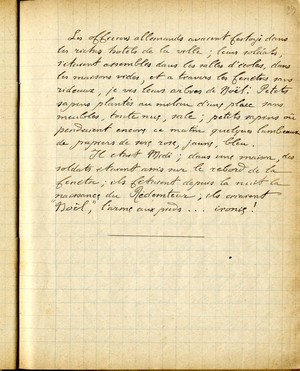 Les officiers allemands avaient festoyé dans
les riches hôtels de la ville ; leurs soldats,
s'étaient assemblés dans les salles d'écoles, dans
les maisons vides, et à travers les fenêtres sans
rideaux, je vis leurs arbres de Noël. Petits
sapins plantés au milieu d'une place sans
meubles, toute nue, sale ; petits sapins où
pendaient encore ce matin quelques lambeaux
de papiers de soie rose, jaune, bleu.
Il était Midi ; dans une maison, des
soldats étaient assis sur le rebord de la
fenêtre ; ils fêtaient depuis la nuit la
naissance du Rédempteur ; ils criaient
"Noël", l'arme aux pieds ... ironie !